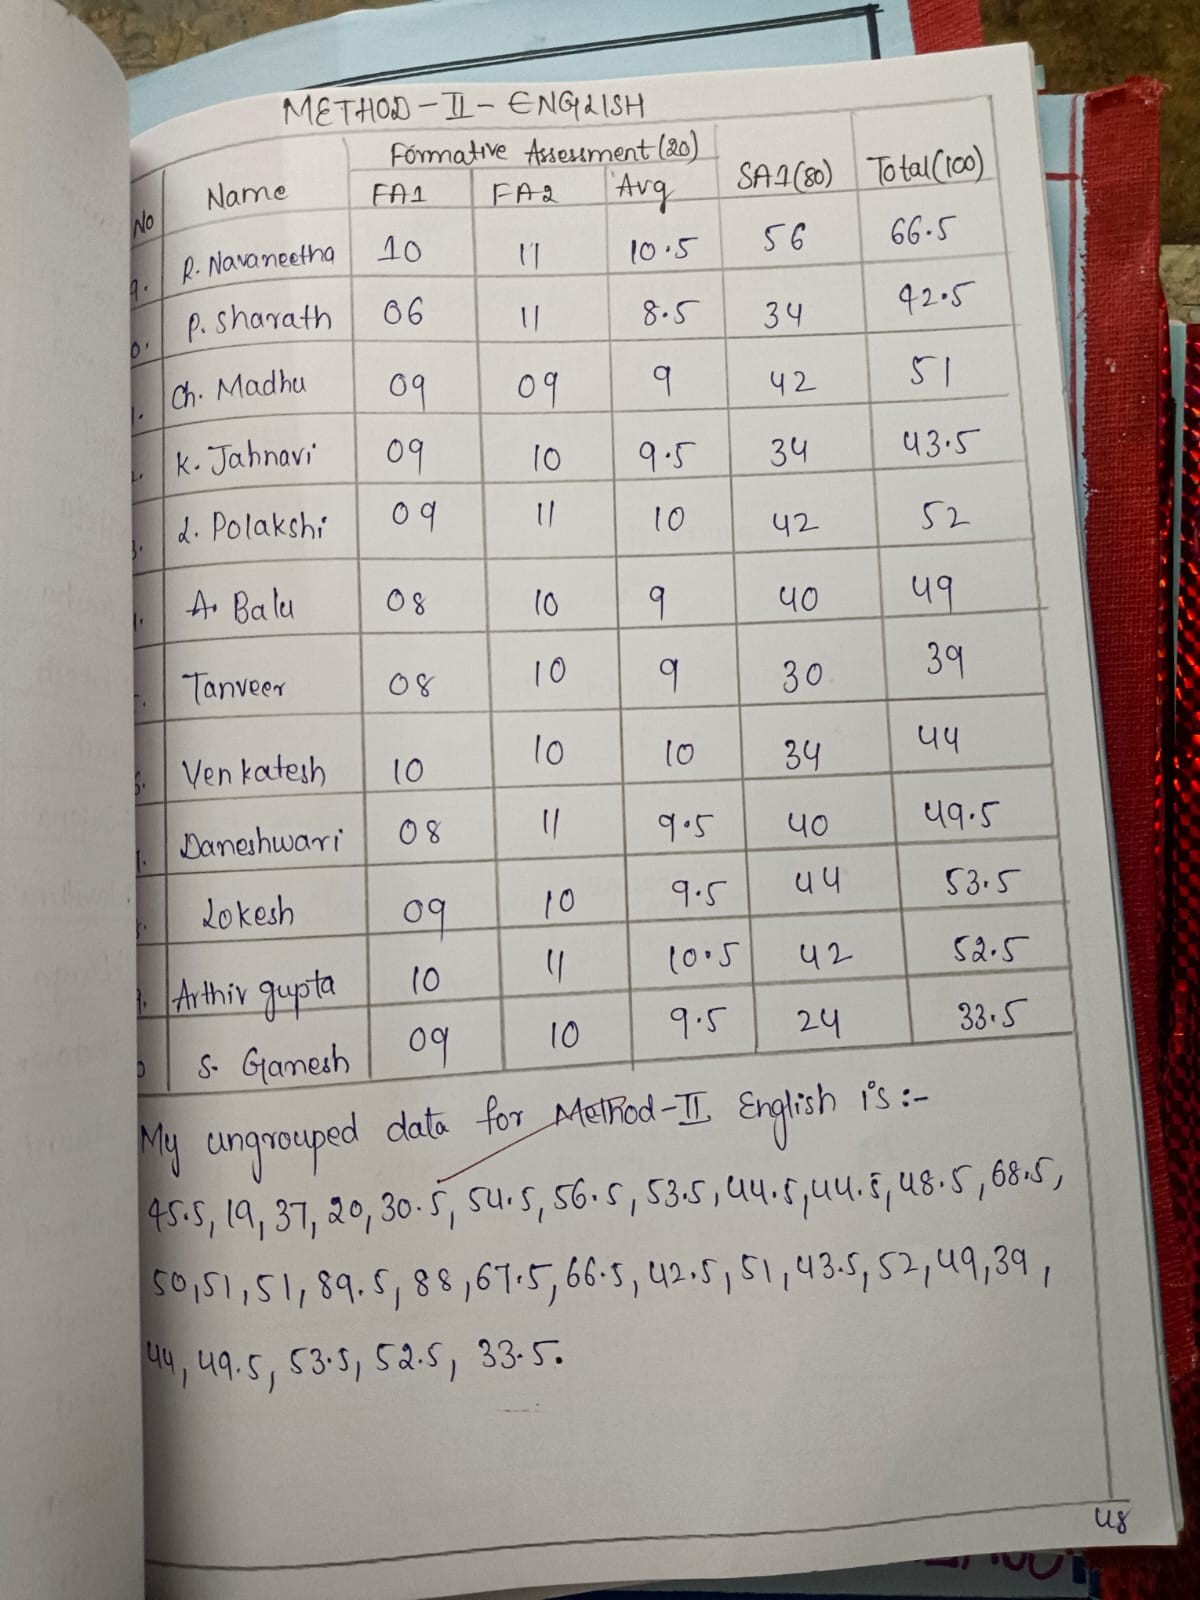 METHOD-II-ENGLISH
No Name Formative Assessment(20) SA1(80) Total(100)
FA1 FA2 Avg
9. R. Navaneetha 10 11 10.5 56 66.5
0. P. Sharath 06 11 8.5 34 42.5
1. Ch. Madhu 09 09 9 42 51
2. K. Jahnavi 09 10 9.5 34 43.5
3. L. Polakshi 09 11 10 42 52
A. Balu 08 10 9 40 49
Tanveer 08 10 9 30 39
6. Venkatesh 10 10 10 34 44
Daneshwari 08 11 9.5 40 49.5
Lokesh 09 10 9.5 44 53.5
9. Arthiv gupta 10 11 10.5 42 52.5
0 S. Ganesh 09 10 9.5 24 33.5
My ungrouped data for Method-II English is:-
45.5, 19, 37, 20, 30.5, 54.5, 56.5, 53.5, 44.5, 44.5, 48.5, 68.5,
50, 51, 51, 89.5, 88, 67.5, 66.5, 42.5, 51, 43.5, 52, 49, 39,
44, 49.5, 53.5, 52.5, 33.5.
48